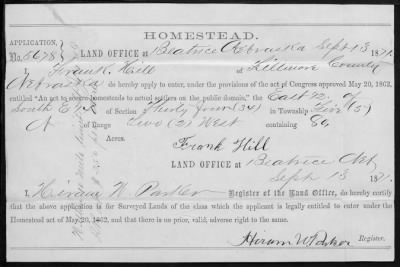 HOMESTEAD.
APPLICATION, No. 5678 LAND OFFICE at Beatrice Nebraska Sept 13 1871.
I, Frank Hill of Fillmore County
Nebraska do hereby apply to enter, under the provisions of the act of Congress approved May 20, 1862,
entitled "An act to secure homesteads to actual settlers on the public domain," the East ½ of
South E of Section Thirty four (34) in Township Five (5)
N of Range Two (2) West containing 80
Acres.
Frank Hill
LAND OFFICE at Beatrice Neb
Sept 13 1871.
I, Hiram W Parker Register of the Land Office, do hereby certify
that the above application is for Surveyed Lands of the class which the applicant is legally entitled to enter under the
Homestead act of May 20, 1862, and that there is no prior, valid, adverse right to the same.
Hiram W Parker
Register.